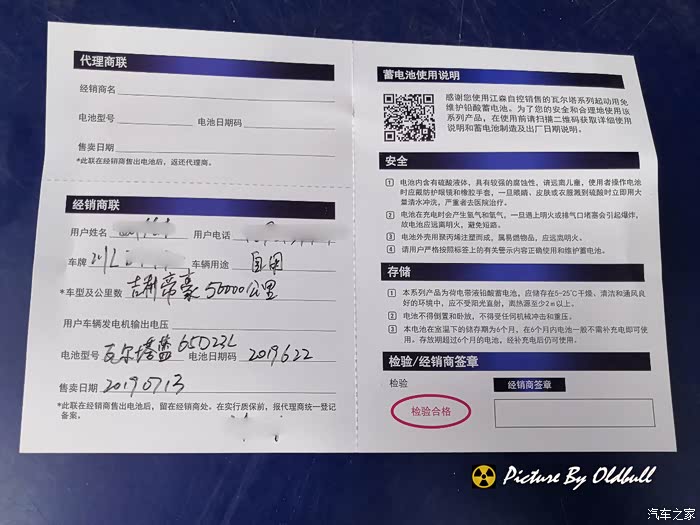 代理商联
经销商名
电池型号 电池日期码
售卖日期
*此联在经销商售出电池后，返还代理商。
经销商联
用户姓名 用户电话
车牌 川L 车辆用途 自用
*车型及公里数 吉利帝豪 50000公里
用户车辆发电机输出电压
电池型号 瓦尔塔蓝65D23L 电池日期码 2019622
售卖日期 20190713
*此联在经销商售出电池后，留在经销商处。在实行质保前，报代理商统一登记
备案。
蓄电池使用说明
感谢您使用江森自控销售的瓦尔塔系列起动用免
维护铅酸蓄电池。为了您的安全和合理地使用该
系列产品，在使用前请扫描二维码获取详细使用
说明和蓄电池制造及出厂日期说明。
安全
1 电池内含有硫酸液体，具有较强的腐蚀性，请远离儿童，使用者操作电池
时应戴防护眼镜和橡胶手套，一旦眼睛、皮肤或衣服溅到硫酸时立即用大
量清水冲洗，严重者去医院治疗。
2 电池在充电时会产生氢气和氧气，一旦遇上明火或排气口堵塞会引起爆炸，
故电池应远离明火，避免短路。
3 电池外壳用聚丙烯注塑而成，属易燃物品，应远离明火。
4 请用户严格按照标签上的有关警示内容正确使用和维护蓄电池。
存储
1 本系列产品为荷电带液铅酸蓄电池，应储存在5-25℃干燥、清洁和通风良
好的环境中，应不受阳光直射，离热源至少2m以上。
2 电池不得倒置和卧放，不得受任何机械冲击和重压。
3 本电池在室温下的储存期为6个月，在6个月内电池一般不需补充电即可使
用。存放期超过6个月的电池，经补充电后仍可使用。
检验/经销商签章
检验 经销商签章
检验合格
Picture By Oldbull
汽车之家